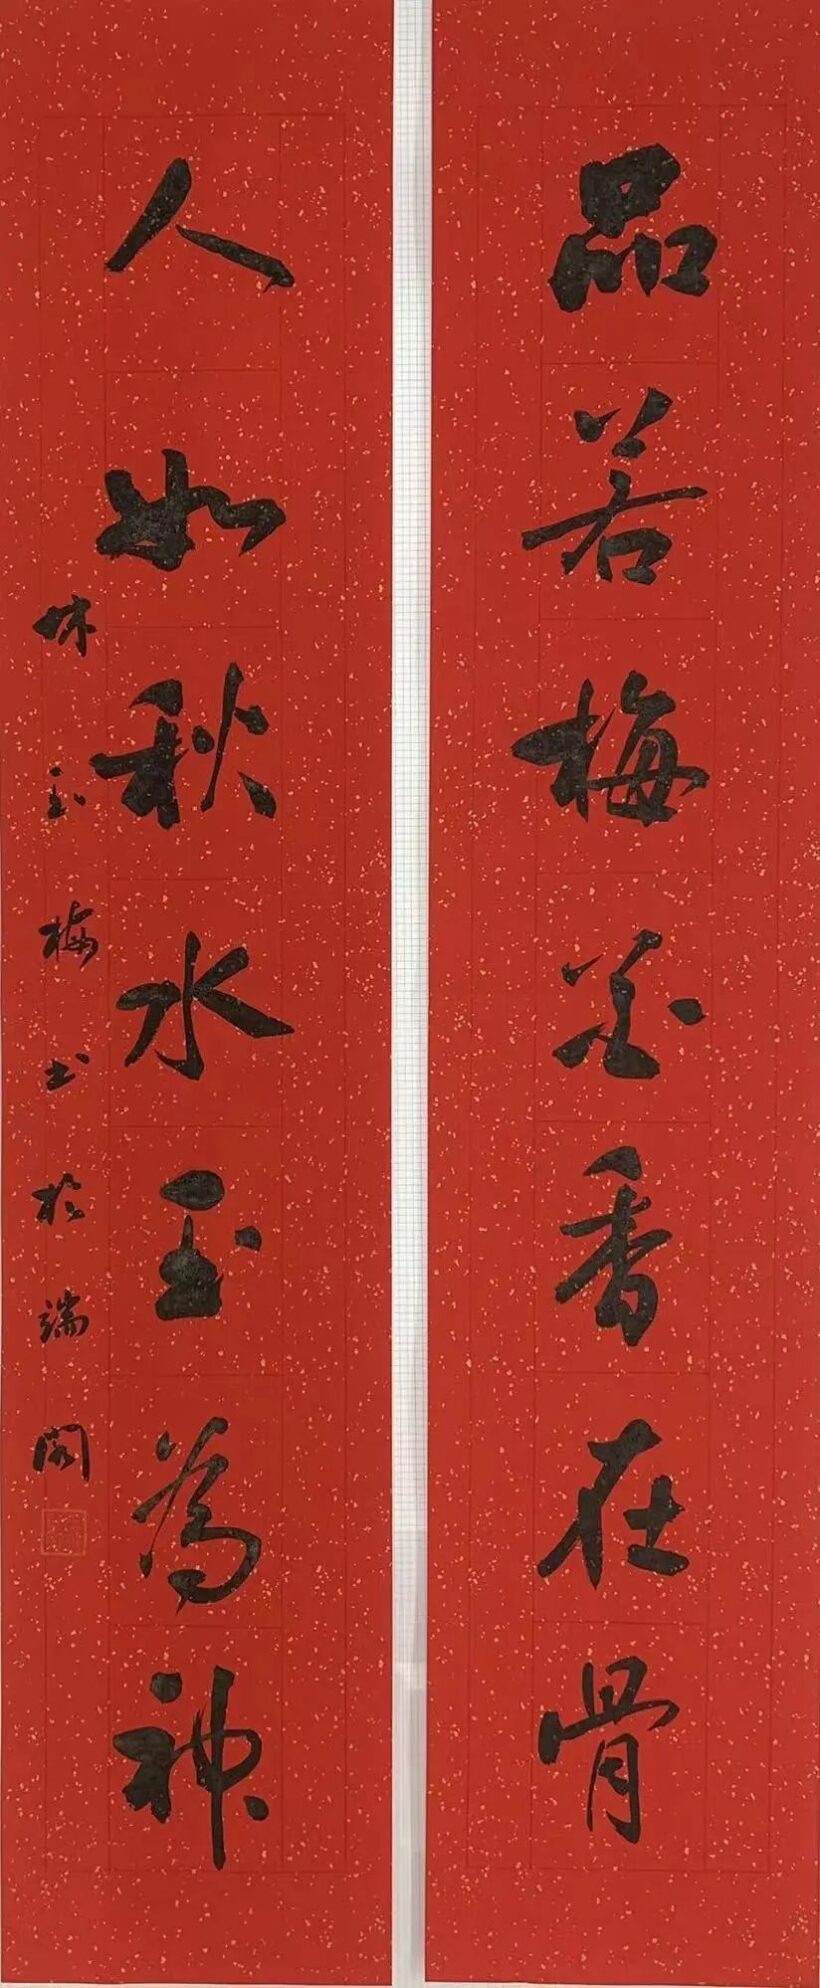 品若梅花香在骨
人如秋水玉为神
林玉梅书于端阁